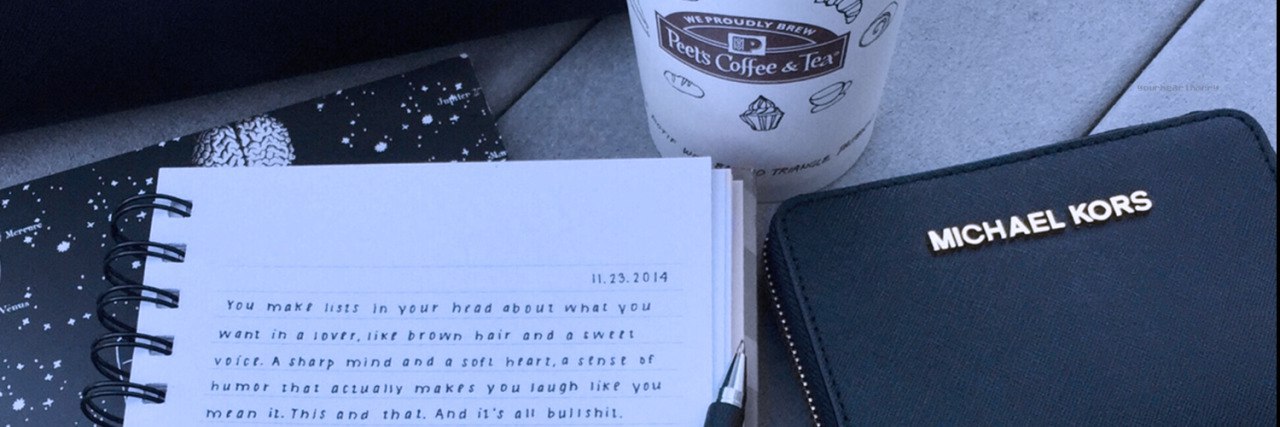 WE PROUDLY BREW
Peet's Coffee & Tea
Jupiter
Mercure
Vénus
MICHAEL KORS
11.23.2014
You make lists in your head about what you
want in a lover, like brown hair and a sweet
voice. A sharp mind and a soft heart, a sense of
humor that actually makes you laugh like you
mean it. This and that. And it's all bullshit.
TRIANGLE